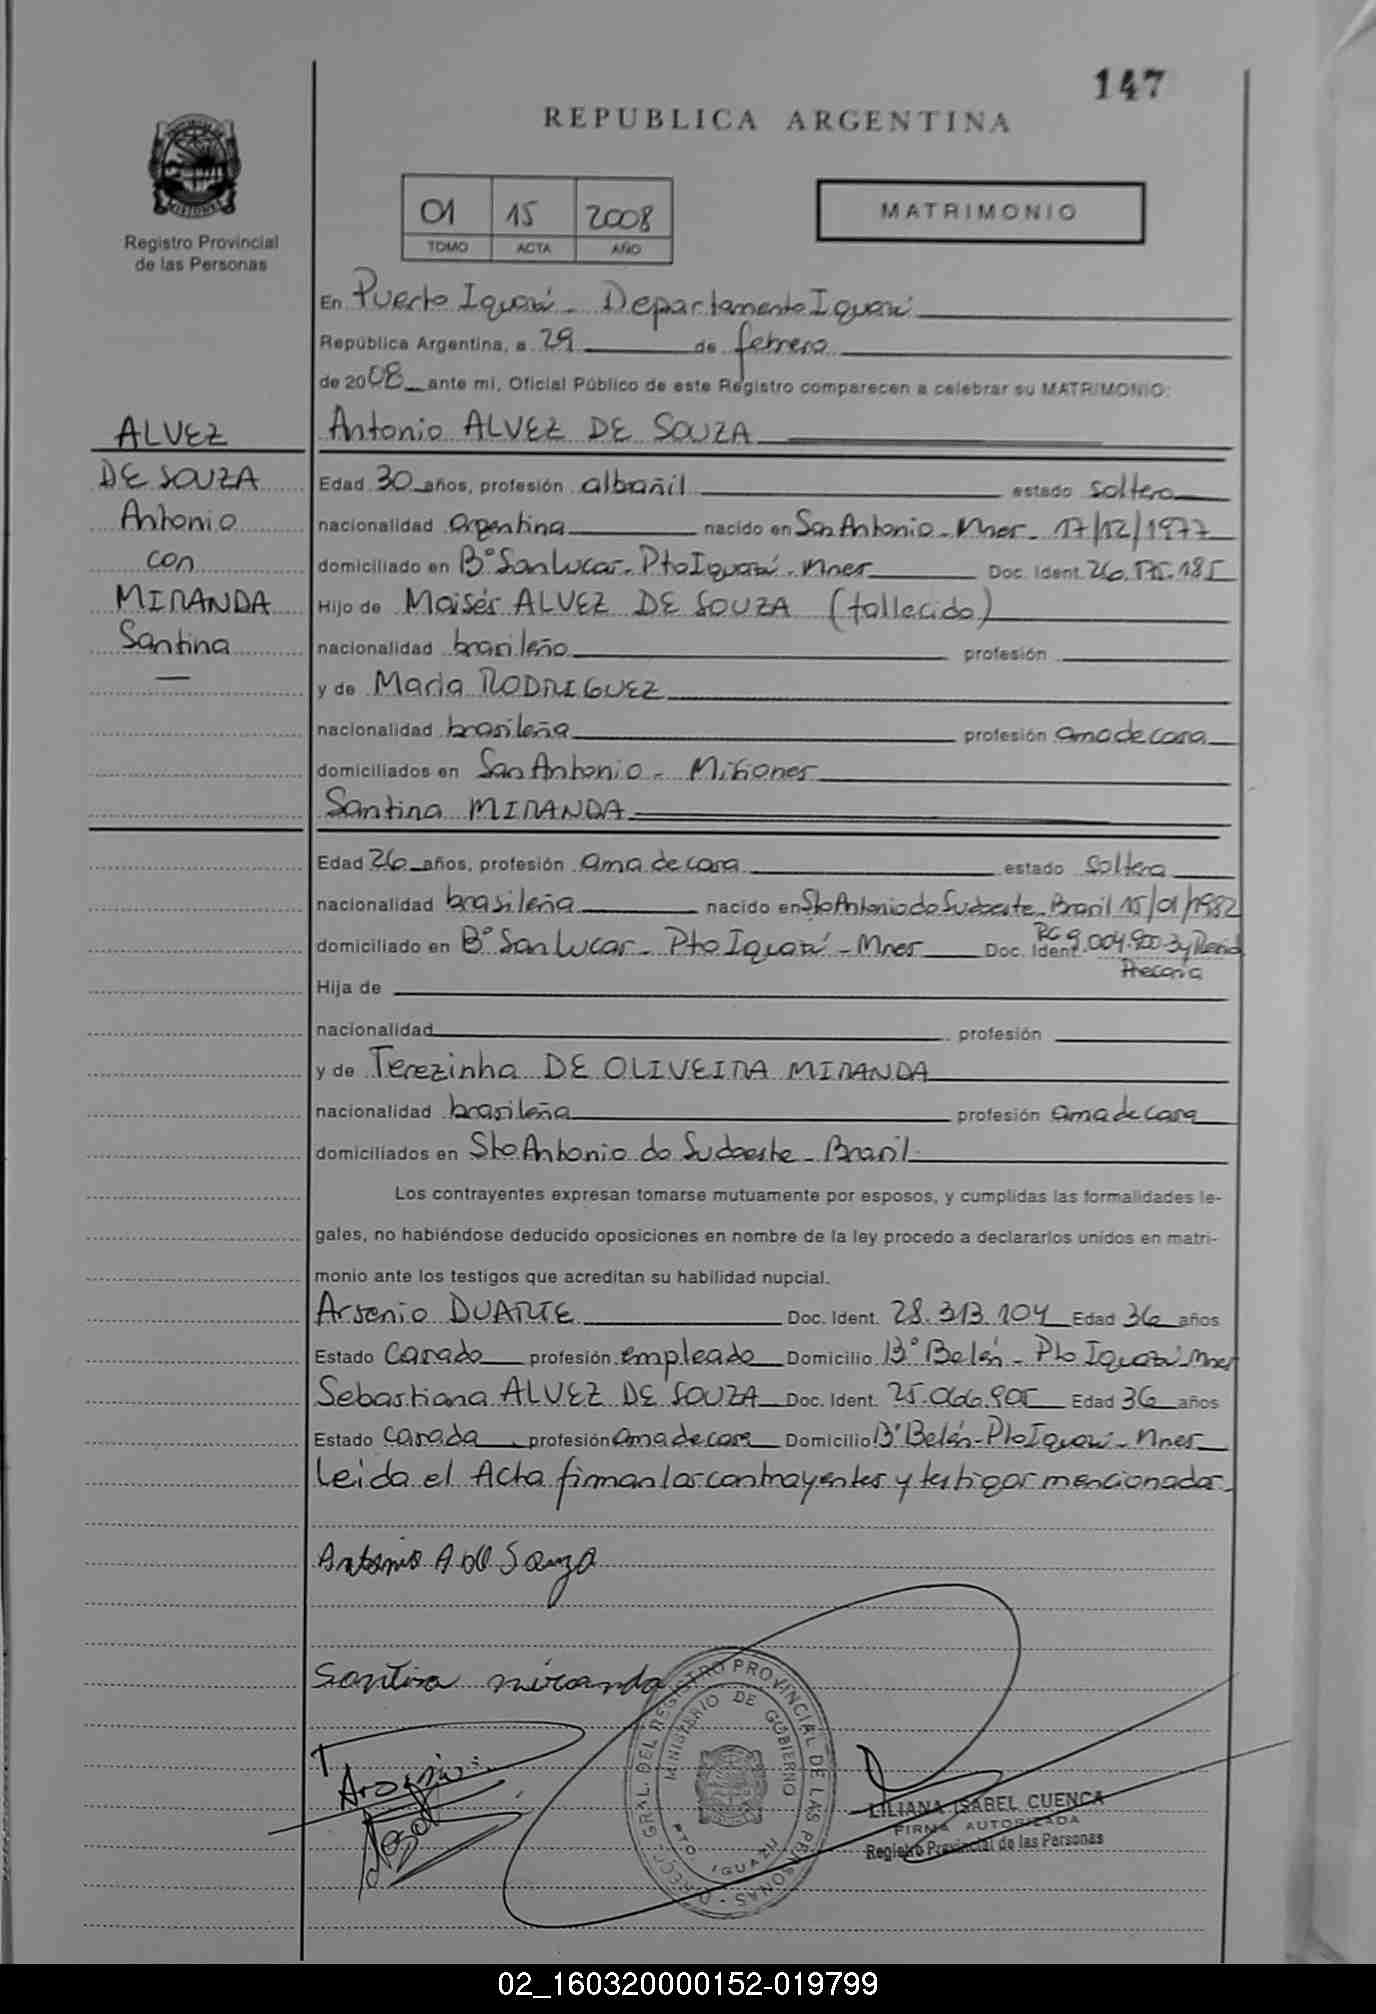 147
REPUBLICA ARGENTINA
MISIONES
Registro Provincial
de las Personas
01 15 2008
TOMO ACTA AÑO
MATRIMONIO
En Puerto Iguazú - Departamento Iguazú
República Argentina, a 29 de febrero
de 2008 ante mi, Oficial Público de este Registro comparecen a celebrar su MATRIMONIO:
ALVEZ
DE SOUZA
Antonio
con
MIRANDA
Santina
—
Antonio ALVEZ DE SOUZA
Edad 30 años, profesión albañil estado soltero
nacionalidad argentina nacido en San Antonio - Mnes - 17/12/1977
domiciliado en Bº San Lucas - Pto Iguazú - Mnes Doc. Ident.
Hijo de Moisés ALVEZ DE SOUZA (fallecido)
nacionalidad brasileño profesión
y de Maria RODRIGUEZ
nacionalidad brasileña profesión ama de casa
domiciliados en San Antonio - Misiones
Santina MIRANDA
Edad 26 años, profesión ama de casa estado soltera
nacionalidad brasileña nacido en Sto Antonio do Sudoeste - Brasil 15/01/1982
domiciliado en Bº San Lucas - Pto Iguazú - Mnes Doc. Ident. RG 9.004.900-3 y
Precaria
Hija de
nacionalidad profesión
y de Terezinha DE OLIVEIRA MIRANDA
nacionalidad brasileña profesión ama de casa
domiciliados en Sto Antonio do Sudoeste - Brasil
Los contrayentes expresan tomarse mutuamente por esposos, y cumplidas las formalidades le-
gales, no habiéndose deducido oposiciones en nombre de la ley procedo a declararlos unidos en matri-
monio ante los testigos que acreditan su habilidad nupcial.
Arsenio DUARTE Doc. Ident. 28.313.104 Edad 36 años
Estado Casado profesión empleado Domicilio Bº Belén - Pto Iguazú Mnes
Sebastiana ALVEZ DE SOUZA Doc. Ident. 25.066.905 Edad 36 años
Estado Casada profesión ama de casa Domicilio Bº Belén - Pto Iguazú - Mnes
Leida el Acta firman los contrayentes y testigos mencionados.
Antonio A de Souza
Santina miranda
DIRECC. GRAL. DEL REGISTRO PROVINCIAL DE LAS PERSONAS
MINISTERIO DE GOBIERNO
PTO. IGUAZU
LILIANA ISABEL CUENCA
FIRMA AUTORIZADA
Registro Provincial de las Personas
02_160320000152-019799